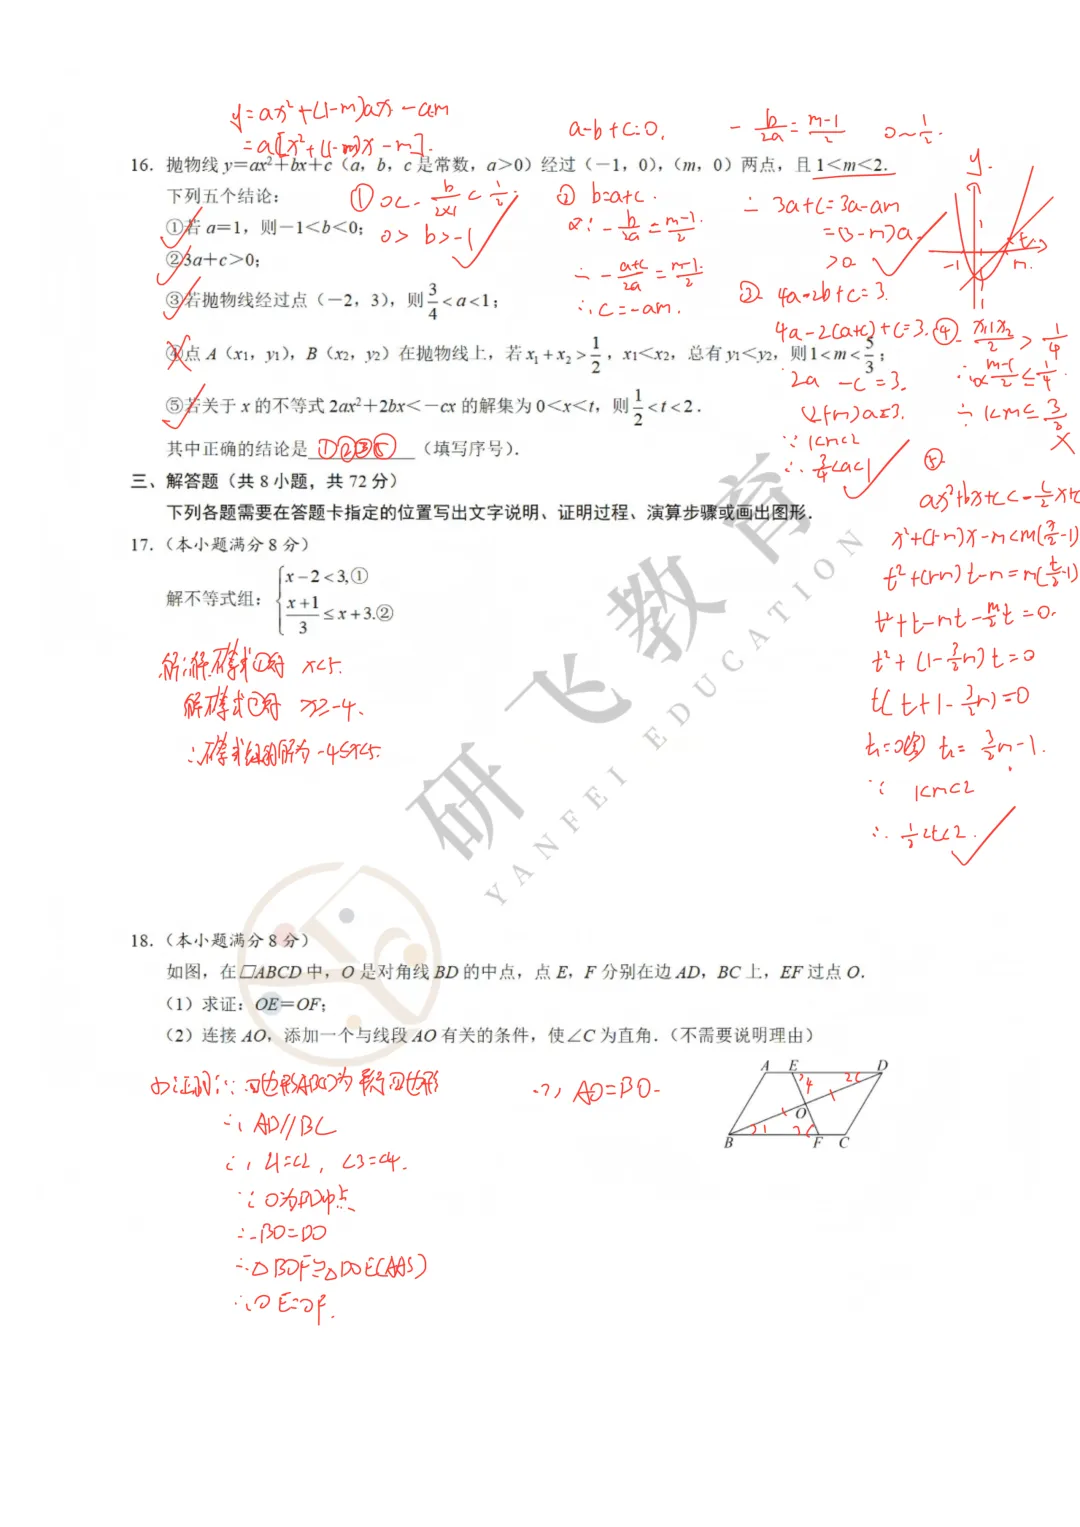 y=ax²+(1-m)ax-am
=a[x²+(1-m)x-m].
a-b+c=0.
-b/2a=(m-1)/2
0~1/2.
16．抛物线 y=ax²+bx+c（a，b，c 是常数，a>0）经过（-1，0），（m，0）两点，且 1<m<2.
下列五个结论：
①若 a=1，则-1<b<0；
②3a+c>0；
③若抛物线经过点（-2，3），则 3/4<a<1；
④点 A（x₁，y₁），B（x₂，y₂）在抛物线上，若 x₁+x₂>1/2，x₁<x₂，总有 y₁<y₂，则 1<m<5/3；
⑤若关于 x 的不等式 2ax²+2bx<-cx 的解集为 0<x<t，则 1/2<t<2．
其中正确的结论是①②③⑤（填写序号）．
① 0<-b/2×1<1/2.
0>b>-1
② b=a+c.
∵-b/2a=(m-1)/2.
∴-(a+c)/2a=(m-1)/2.
∴c=-am.
∴3a+c=3a-am
=(3-m)a.
>0
③ 4a-2b+c=3.
4a-2(a+c)+c=3.
2a-c=3.
(2+m)a=3.
∵1<m<2
∴3/4<a<1
y.
-1
m.
④ (x₁+x₂)/2>1/4
∴(m-1)/2≤1/4.
∴1<m≤3/2
⑤
x²+(1-m)x-m<m(x/2-1)
t²+(1-m)t-m=m(t/2-1)
t²+t-mt-m/2t=0.
t²+(1-3/2m)t=0
t(t+1-3/2m)=0
t₂=3/2m-1.
∵1<m<2
∴1/2<t<2.
三、解答题（共 8 小题，共 72 分）
下列各题需要在答题卡指定的位置写出文字说明、证明过程、演算步骤或画出图形．
17．（本小题满分 8 分）
解不等式组：{x-2<3,① (x+1)/3≤x+3.②
解:解不等式①得 x<5.
解不等式②得 x≥-4.
∴不等式组的解为-4≤x<5.
研飞教育
YANFEI EDUCATION
18．（本小题满分 8 分）
如图，在▱ABCD 中，O 是对角线 BD 的中点，点 E，F 分别在边 AD，BC 上，EF 过点 O．
（1）求证：OE=OF；
（2）连接 AO，添加一个与线段 AO 有关的条件，使∠C 为直角．（不需要说明理由）
(1)证明:∵四边形ABCD为平行四边形
∴AD//BC
∴∠1=∠2，∠3=∠4.
∵O为BD中点
∴BO=DO
∴△BOF≌△DOE(AAS)
∴OE=OF.
(2) AO=BO.
A E D
3 4 2
O
1
B F C